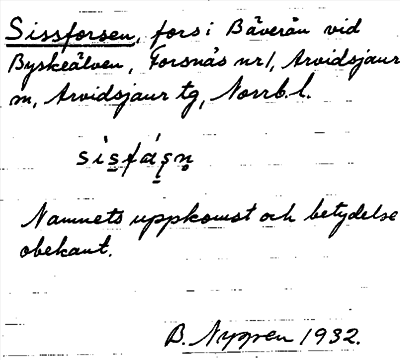 Sissforsen, fors i Bäverån vid
Byskeälven, Forsnäs nr 1, Arvidsjaur
sn, Arvidsjaur tg, Norrb. l.
Namnets uppkomst och betydelse
obekant.
B. Nygren 1932.